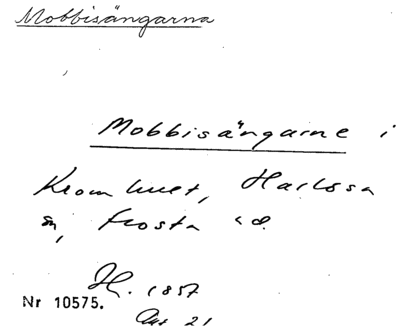 Mobbisängarna
Mobbisängarne i
Kromhult, Harlösa
sn, Frosta hd.
H. 1857
Nr 10575.
21